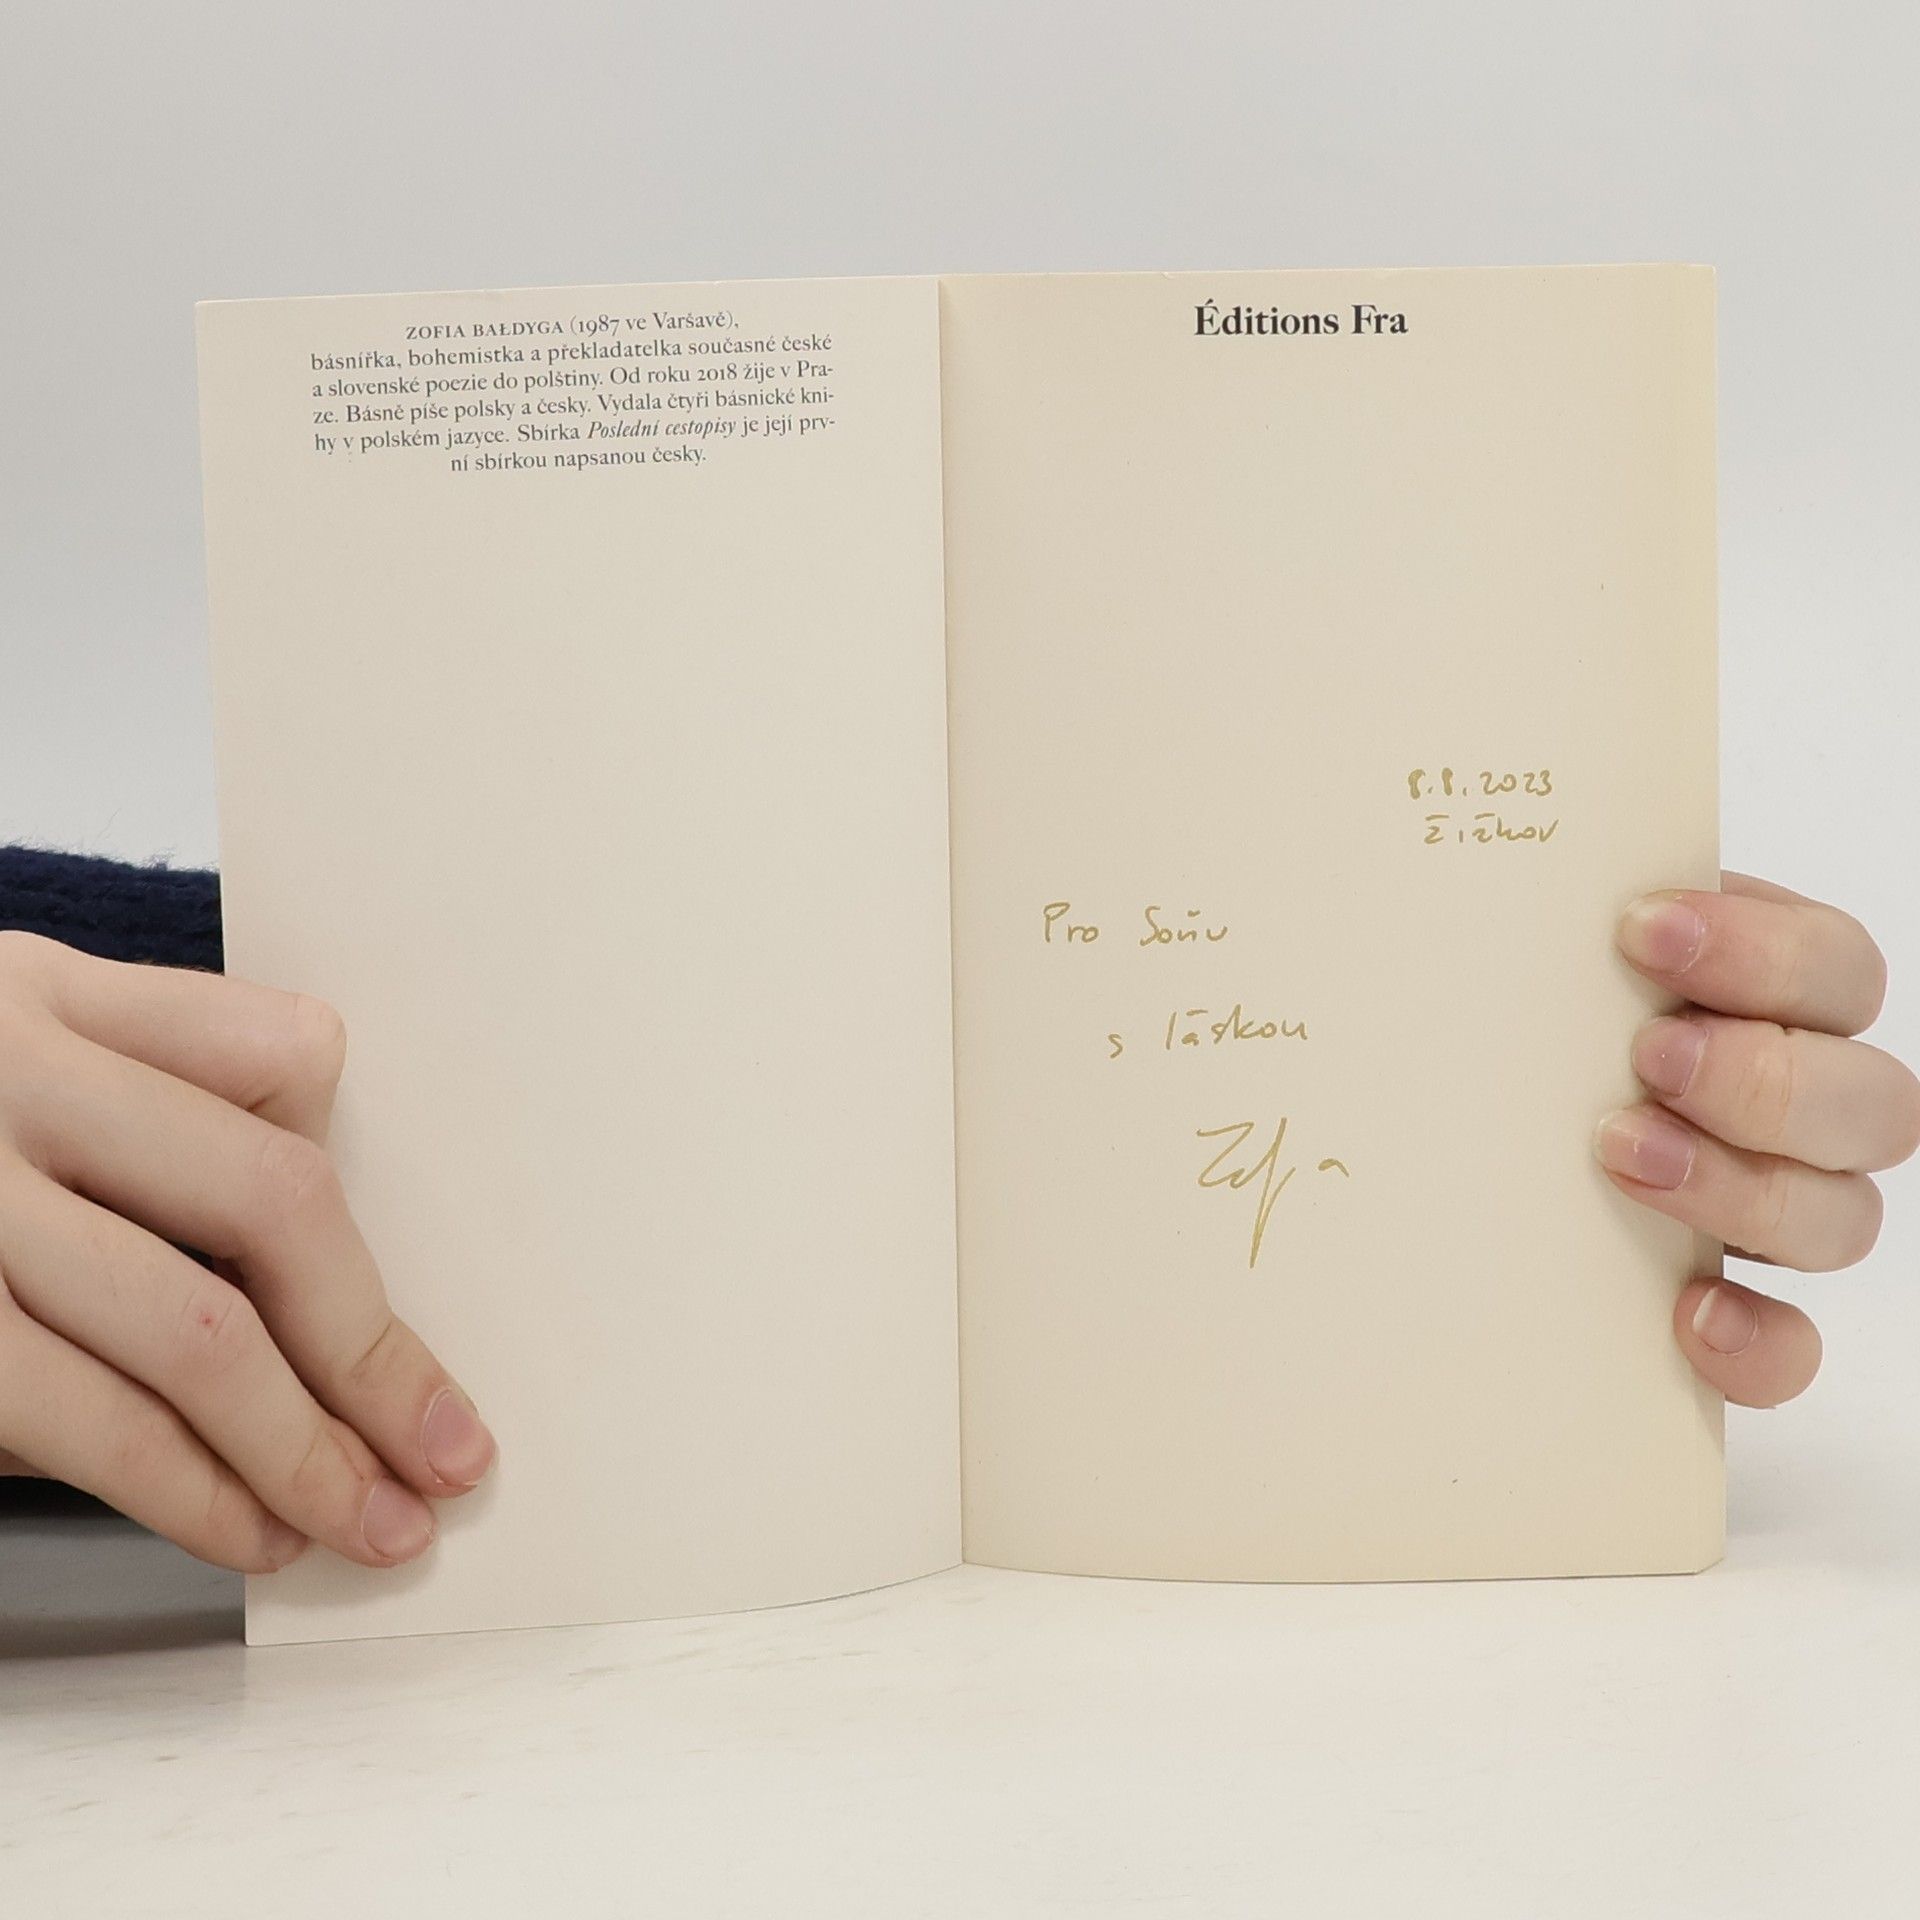 ZOFIA BAŁDYGA (1987 ve Varšavě),
básnířka, bohemistka a překladatelka současné české
a slovenské poezie do polštiny. Od roku 2018 žije v Pra-
ze. Básně píše polsky a česky. Vydala čtyři básnické kni-
hy v polském jazyce. Sbírka Poslední cestopisy je její prv-
ní sbírkou napsanou česky.
Éditions Fra
8.8.2023
Žižkov
Pro Soňu
s láskou
Zofia